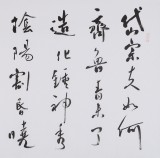 岱宗夫如何
齊魯青未了
造化鍾神秀
陰陽割昏曉